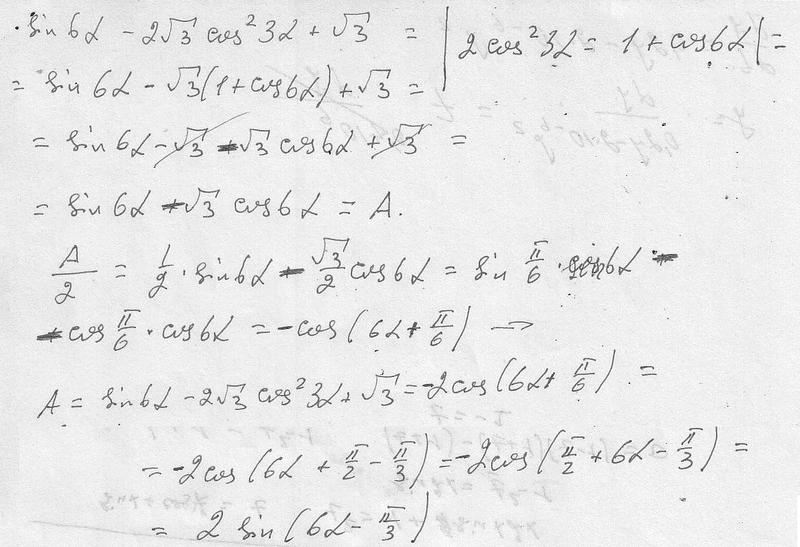 sin 6α - 2√3 cos² 3α + √3 = | 2 cos² 3α = 1 + cos 6α | =
= sin 6α - √3 (1 + cos 6α) + √3 =
= sin 6α - √3 - √3 cos 6α + √3 =
= sin 6α - √3 cos 6α = A.
A/2 = 1/2 · sin 6α - √3/2 cos 6α = sin π/6 · sin 6α -
- cos π/6 · cos 6α = -cos (6α + π/6) →
A = sin 6α - 2√3 cos² 3α + √3 = -2 cos (6α + π/6) =
= -2 cos (6α + π/2 - π/3) = -2 cos (π/2 + 6α - π/3) =
= 2 sin (6α - π/3)